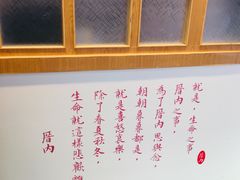 就是,生命之事
厝內之事,
為了厝內 思與念,
朝朝暮暮都是,
就是喜怒哀樂,
除了春夏秋冬,
生命就這樣悲歡
厝內